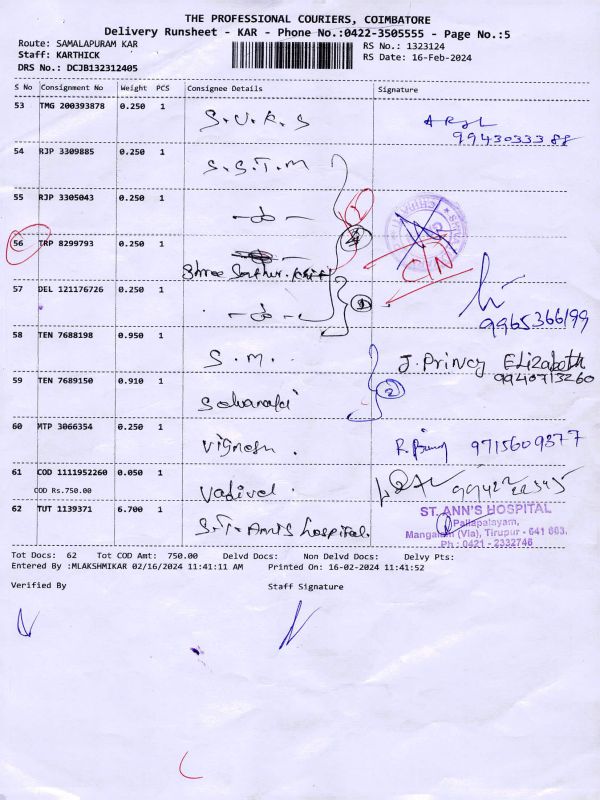 THE PROFESSIONAL COURIERS, COIMBATORE
Delivery Runsheet - KAR - Phone No.:0422-3505555 - Page No.:5
Route: SAMALAPURAM KAR
RS No.: 1323124
Staff: KARTHICK
RS Date: 16-Feb-2024
DRS No.: DCJB132312405
S No Consignment No Weight PCS Consignee Details Signature
53 TMG 200393878 0.250 1 S.U.R.S
9943033388
54 RJP 3309885 0.250 1 S.S.T.M
55 RJP 3305043 0.250 1
56 TRP 8299793 0.250 1 Shree
C/N
57 DEL 121176726 0.250 1
9965366199
58 TEN 7688198 0.950 1 S.M. J. Princy Elizabeth
9940713260
59 TEN 7689150 0.910 1
2
60 MTP 3066354 0.250 1 Vignesh. 9715609877
61 COD 1111952260 0.050 1 Vadivel.
COD Rs.750.00
62 TUT 1139371 6.700 1 S.T. Ann's hospital.
ST. ANN'S HOSPITAL
Pallapalayam,
Mangalam (Via), Tirupur - 641 663.
Ph : 0421 - 2332746
Tot Docs: 62 Tot COD Amt: 750.00 Delvd Docs: Non Delvd Docs: Delvy Pts:
Entered By :MLAKSHMIKAR 02/16/2024 11:41:11 AM Printed On: 16-02-2024 11:41:52
Verified By Staff Signature